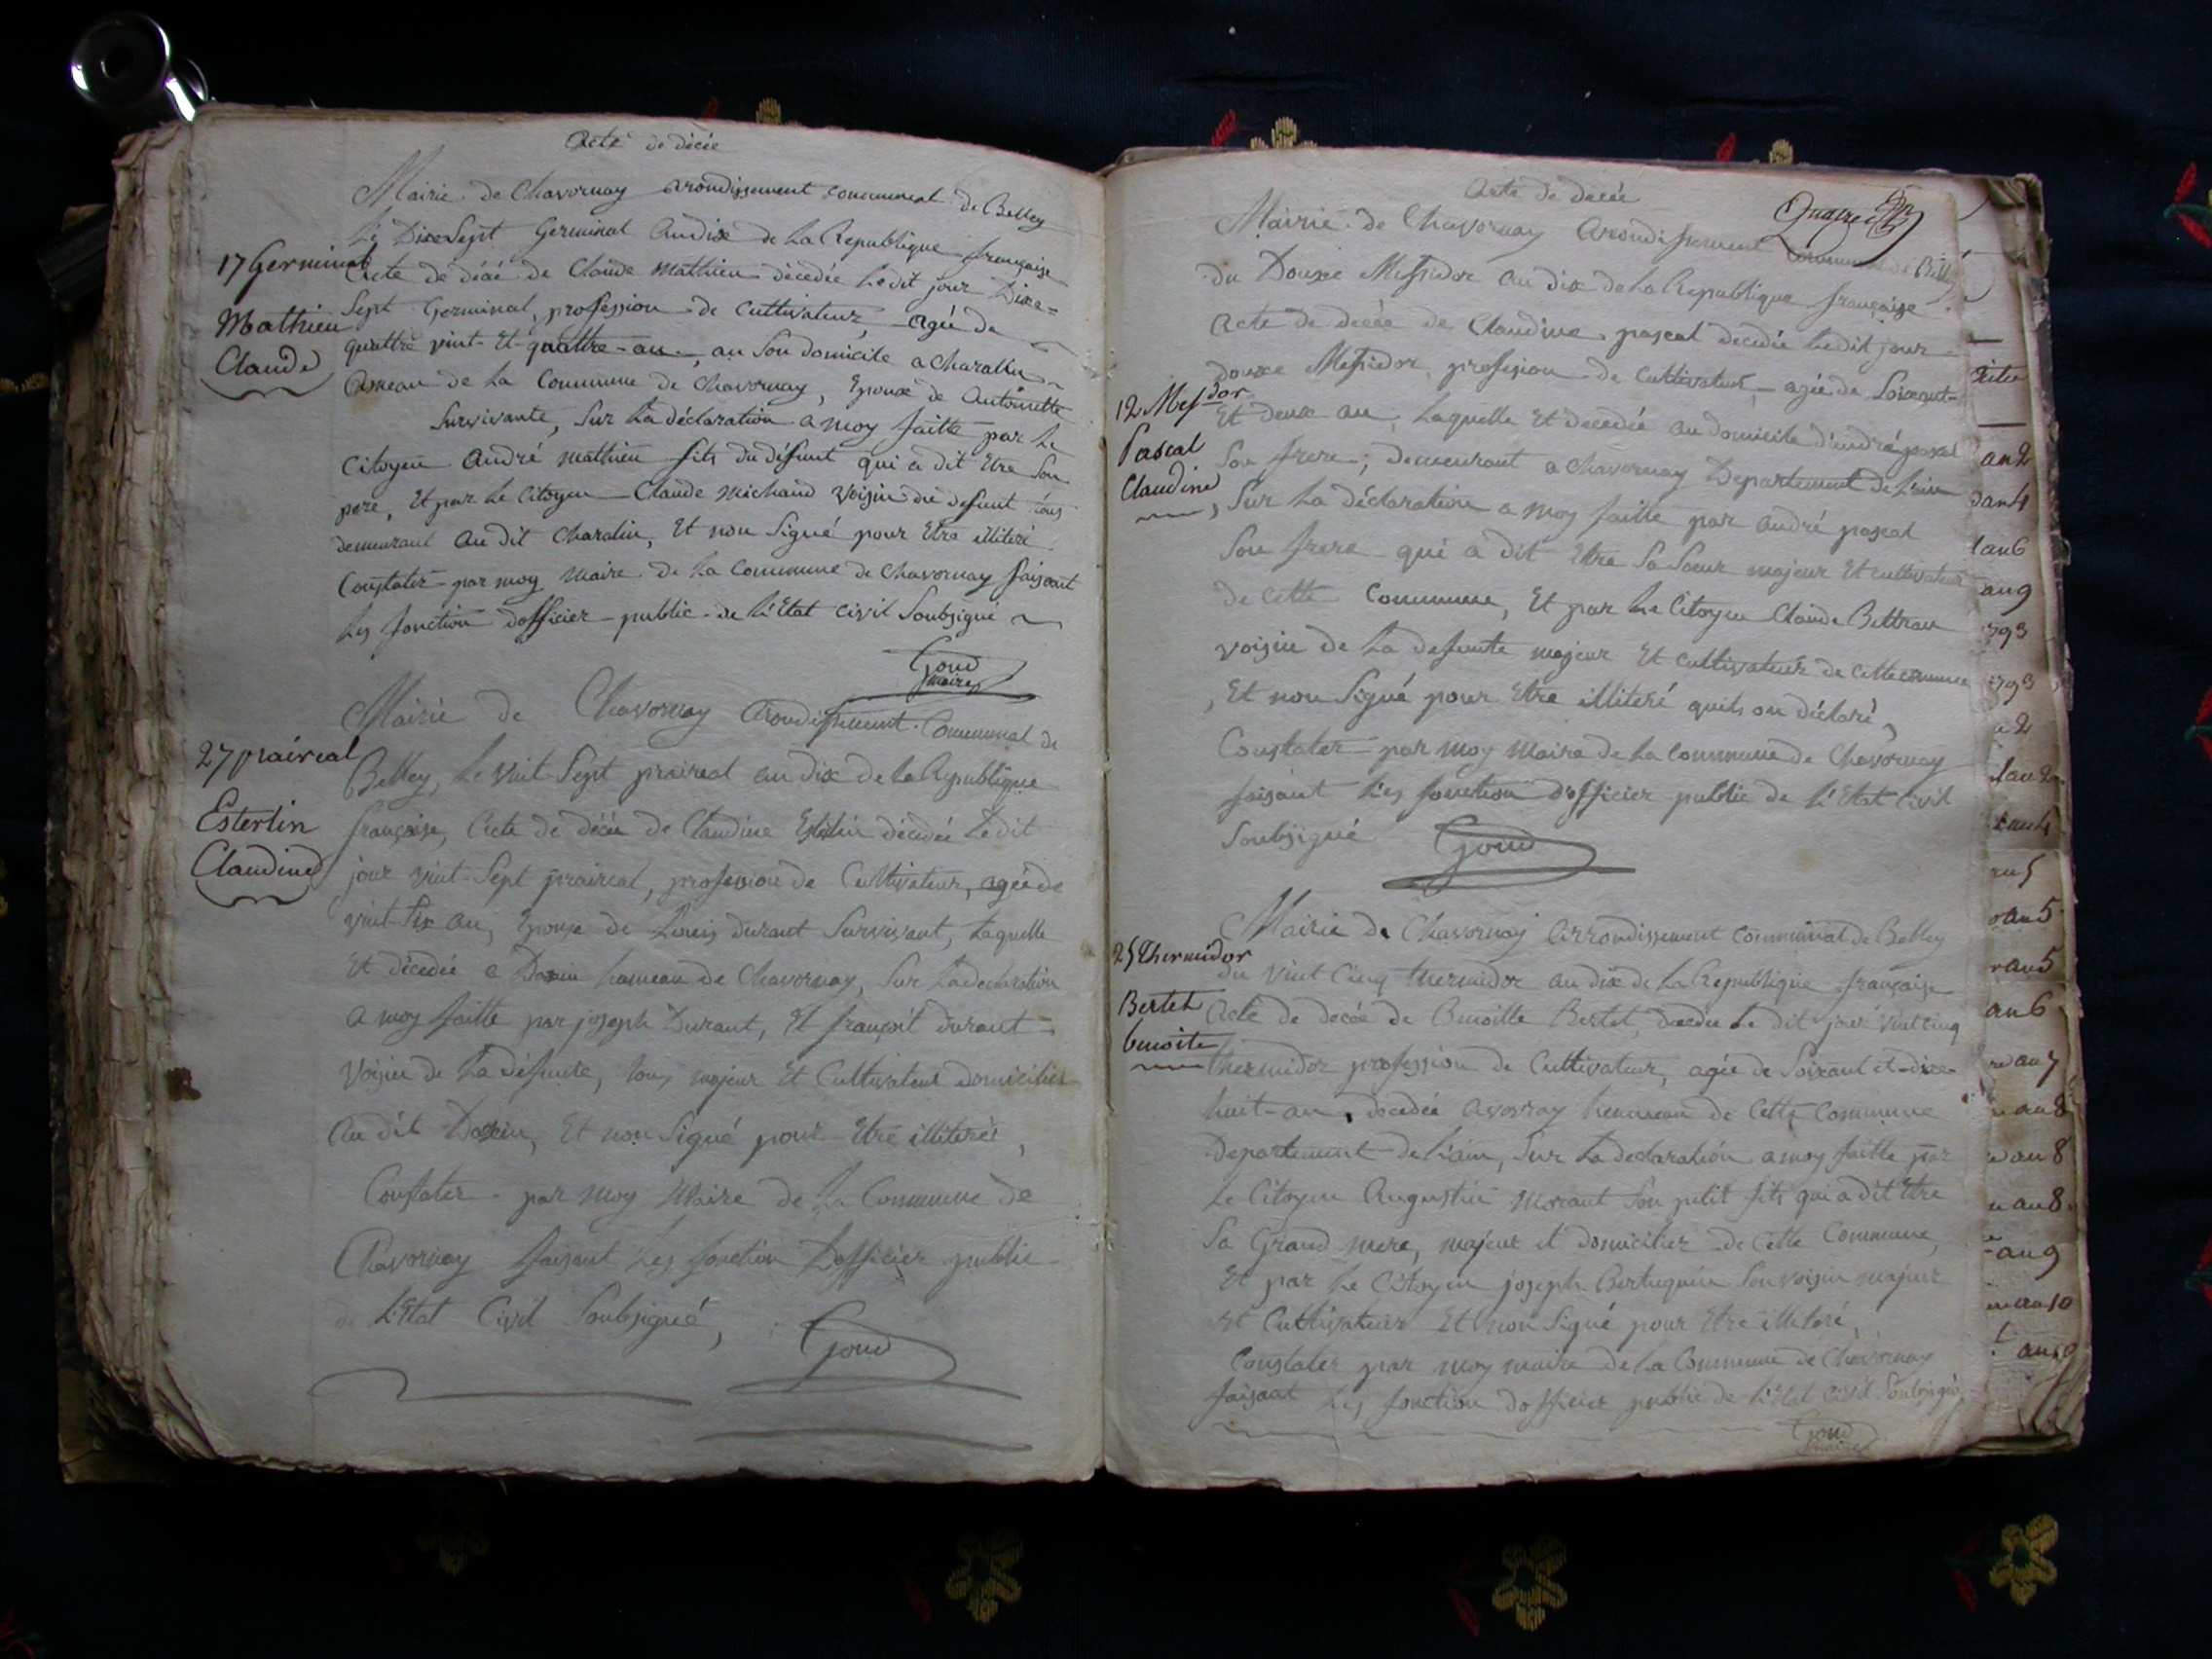 Acte de décée
Mairie de Chavornay arondissement communal de Belley
Le Dixe Sept Germinal an dix de La Republique française
17 Germinal
Acte de décé de Claude Mathieu décédée Le dit jour Dixe=
Mathieu
Claude
Sept Germinal, profession de Cultivateur, agée de
quattre vint Et quattre an, an Son domicile a Charalin
ameau de La Commune de Chavornay, Epoux de Antoinette
Survivante, Sur La déclaration a moy faitte par Le
Citoyen André Mathieu fils du défunt qui a dit Etre Son
pere, Et par Le Citoyen Claude Michaud Voisin du defunt tous
demeurant au dit Charalin, Et non Signé pour Etre illiteré
Constater par moy Maire de La Commune de Chavornay faisant
Les fonction dofficier public de L'Etat Civil Soubsigné
Goud
maire
Mairie de Chavornay Arondissement Communal de
27 praireal
Belley, Le vint Sept praireal an dix de La Republique
Esterlin
Claudine
française, Acte de décée de Claudine décédée Le dit
jour vint Sept praireal, profession de Cultivateur, agée de
vint Six an, Epouse de Louis durant Survivant, Laquelle
Et décédée a hameau de Chavornay, Sur La declaration
a moy faitte par joseph Durant, Et françois durant
Voisin de La défunte, tous majeur Et Cultivateur domicilier
Au dit Et non Signé pour Etre illiterés,
Constater par moy Maire de La Commune de
Chavornay faisant Les fonction Dofficier public
de L'Etat Civil Soubsigné,
Goud
Acte de decée
Mairie de Chavornay Arondissement Communal de Belley
du Douxe Messidor an dix de La Republique française
Acte de decée de Claudine pascal decedée Le dit jour
douxe Messidor profession de Cultivateur, agée de Soixant
12 Messdor
Pascal
Claudine
Et deux an, Laquelle Et decedée au domicile d'andré pascal
Son frere; demeurant a Chavornay Departement de L'ain
Sur La déclaration a moy faitte par andré pascal
Son frere qui a dit Etre Sa Soeur majeur Et cultivateur
de Cette Commune, Et par Le Citoyen Claude Bettran
voisin de La defunte majeur Et Cultivateur de Cette commune
, Et non Signé pour Etre illiteré quils on déclaré,
Constater par moy Maire de La Commune de Chavornay
faisant Les fonction dofficier public de L'Etat Civil
Soubsigné Goud
Mairie de Chavornay Arrondissement Communal de Belley
25 Thermidor
du vint Cinq thermidor an dix de La Republique française
Bertet
benoite
Acte de decée de Benoitte Bertet, decedée Le dit jour vint cinq
thermidor profession de Cultivateur, agée de Soixant et dixe
huit an, decedée a vovray de Cette Commune
Departement de L'ain, Sur La declaration a moy faitte par
Le Citoyen Augustin Morant Son petit fils qui a dit Etre
Sa Grand mere, majeur et domicilier de Cette Commune,
Et par Le Citoyen joseph Son voisin majeur
Et Cultivateur Et non Signé pour Etre illiteré,
Constater par moy maire de La Commune de Chavornay
faisant Les fonction dofficier public de L'Etat Civil Soubsigné
Goud
maire
an 2
an 4
an 6
an 9
793
1793
an 5
an 5
an 5
an 6
an 7
an 8
an 8
an 8
an 9
an 10